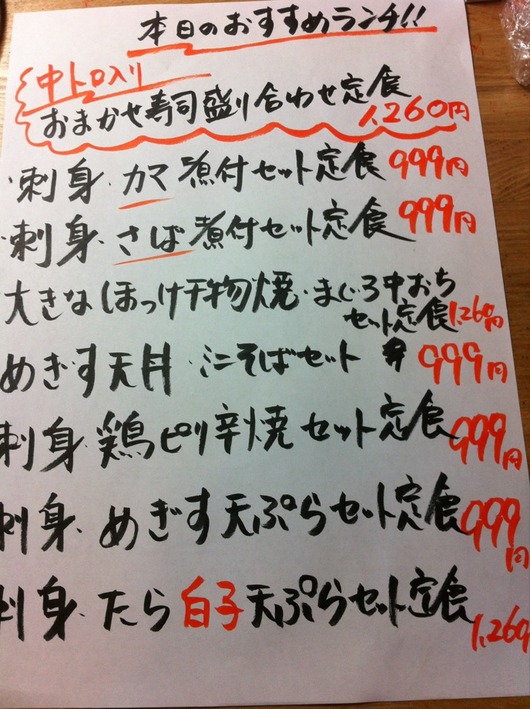 本日のおすすめランチ!!
中トロ入り
おまかせ寿司盛り合わせ定食 1,260円
・刺身・カマ煮付セット定食 999円
・刺身・さば煮付セット定食 999円
大きなほっけ干物焼・まぐろ中おち
セット定食 1,260円
めぎす天丼・ミニそばセット 999円
刺身・鶏ピリ辛焼セット定食 999円
刺身・めぎす天ぷらセット定食 999円
刺身・たら白子天ぷらセット定食 1,260